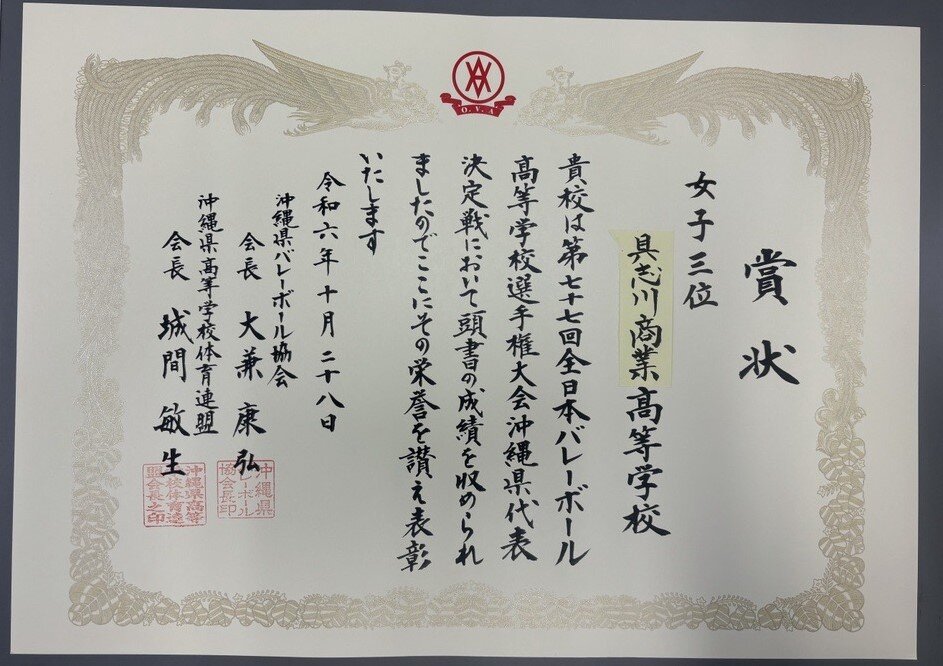 O.V.A
賞状
女子三位
具志川商業高等学校
貴校は第七十七回全日本バレーボール
高等学校選手権大会沖縄県代表
決定戦において頭書の成績を収められ
ましたのでここにその栄誉を讃え表彰
いたします
令和六年十月二十八日
沖縄県バレーボール協会
会長 大兼康弘
沖縄県高等学校体育連盟
会長 城間敏生
沖縄県
バレーボール
協会長印
沖縄県高等
学校体育連
盟会長之印